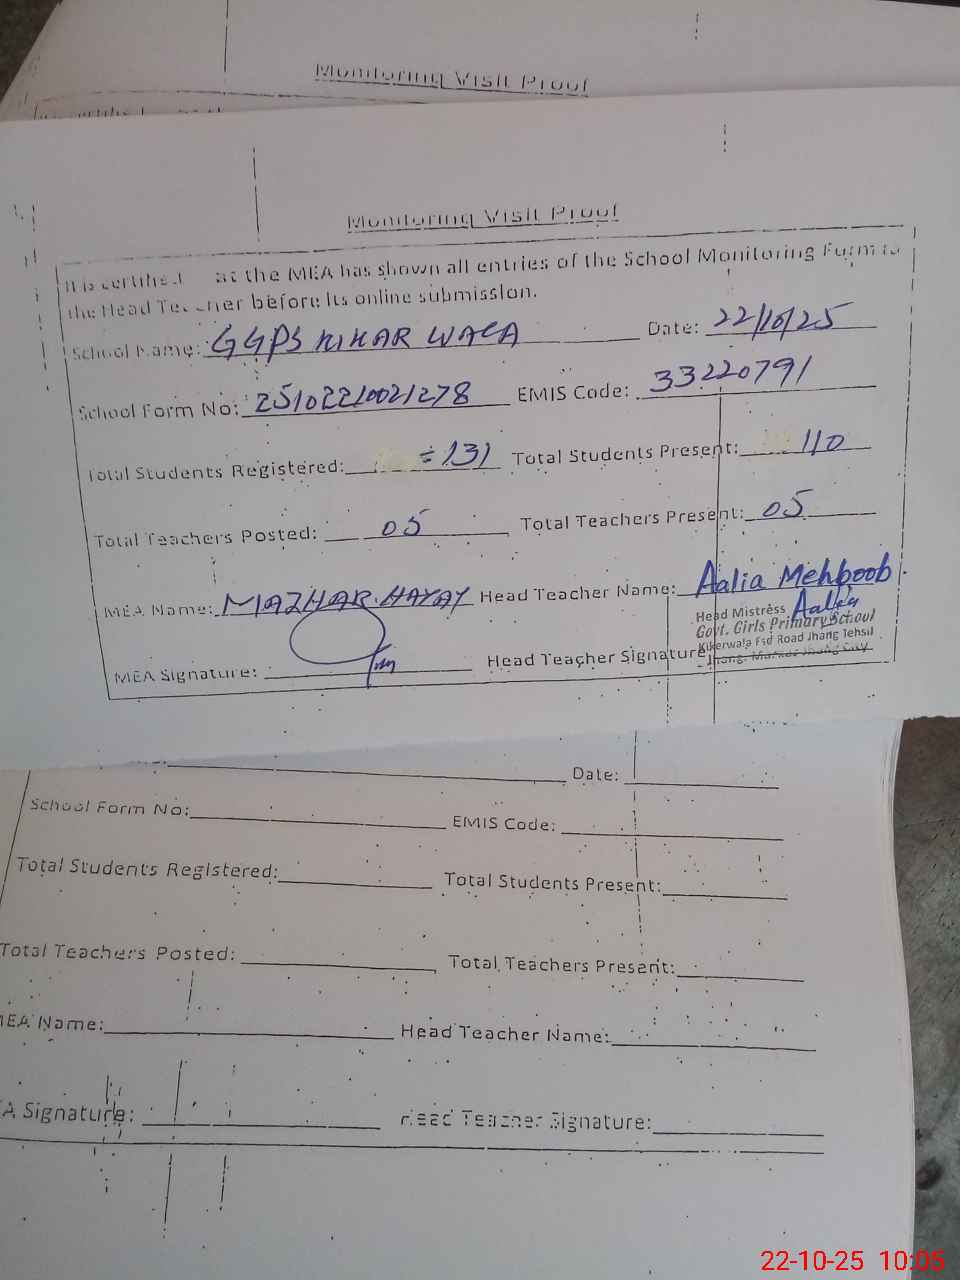 Monitoring Visit Proof
Monitoring Visit Proof
It is certified at the MEA has shown all entries of the School Monitoring Form to
the Head Teacher before its online submission.
School Name: GGPS KIKAR WALA Date: 22/10/25
School Form No: 25102210021278 EMIS Code: 33220791
Total Students Registered: 131 Total Students Present: 110
Total Teachers Posted: 05 Total Teachers Present: 05
MEA Name: MAZHAR HAYAT Head Teacher Name: Aalia Mehboob
MEA Signature: Head Teacher Signature
Aalia
Head Mistress
Govt. Girls Primary School
Kikerwala Fsd Road Jhang Tehsil
Jhang. Markaz Jhang City
Date:
School Form No: EMIS Code:
Total Students Registered: Total Students Present:
Total Teachers Posted: Total Teachers Present:
MEA Name: Head Teacher Name:
A Signature: Head Teacher Signature:
22-10-25 10:05